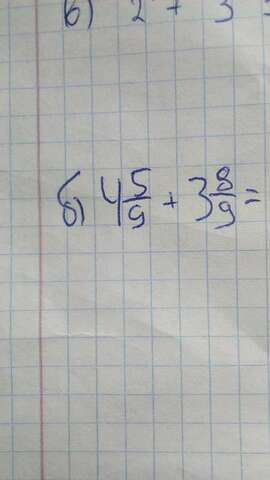 в) 2 + 3 =
б) 4 5/9 + 3 8/9 =